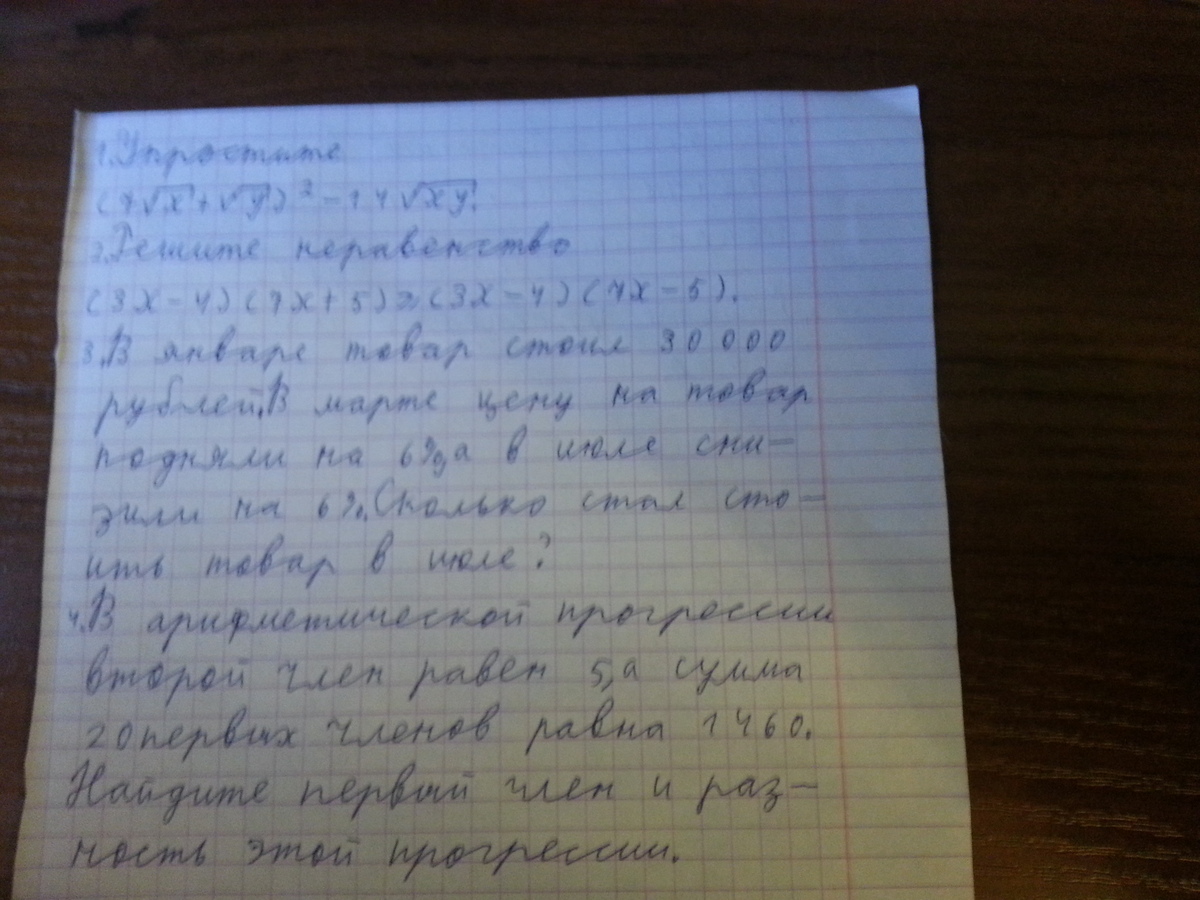 1. Упростите
(7√x+√y)²-14√xy.
2. Решите неравенство
(3x-4)(7x+5)≥(3x-4)(7x-5).
3. В январе товар стоил 30 000
рублей. В марте цену на товар
подняли на 6%, а в июле сни-
зили на 6%. Сколько стал сто-
ить товар в июле?
4. В арифметической прогрессии
второй член равен 5, а сумма
20 первых членов равна 1460.
Найдите первый член и раз-
ность этой прогрессии.